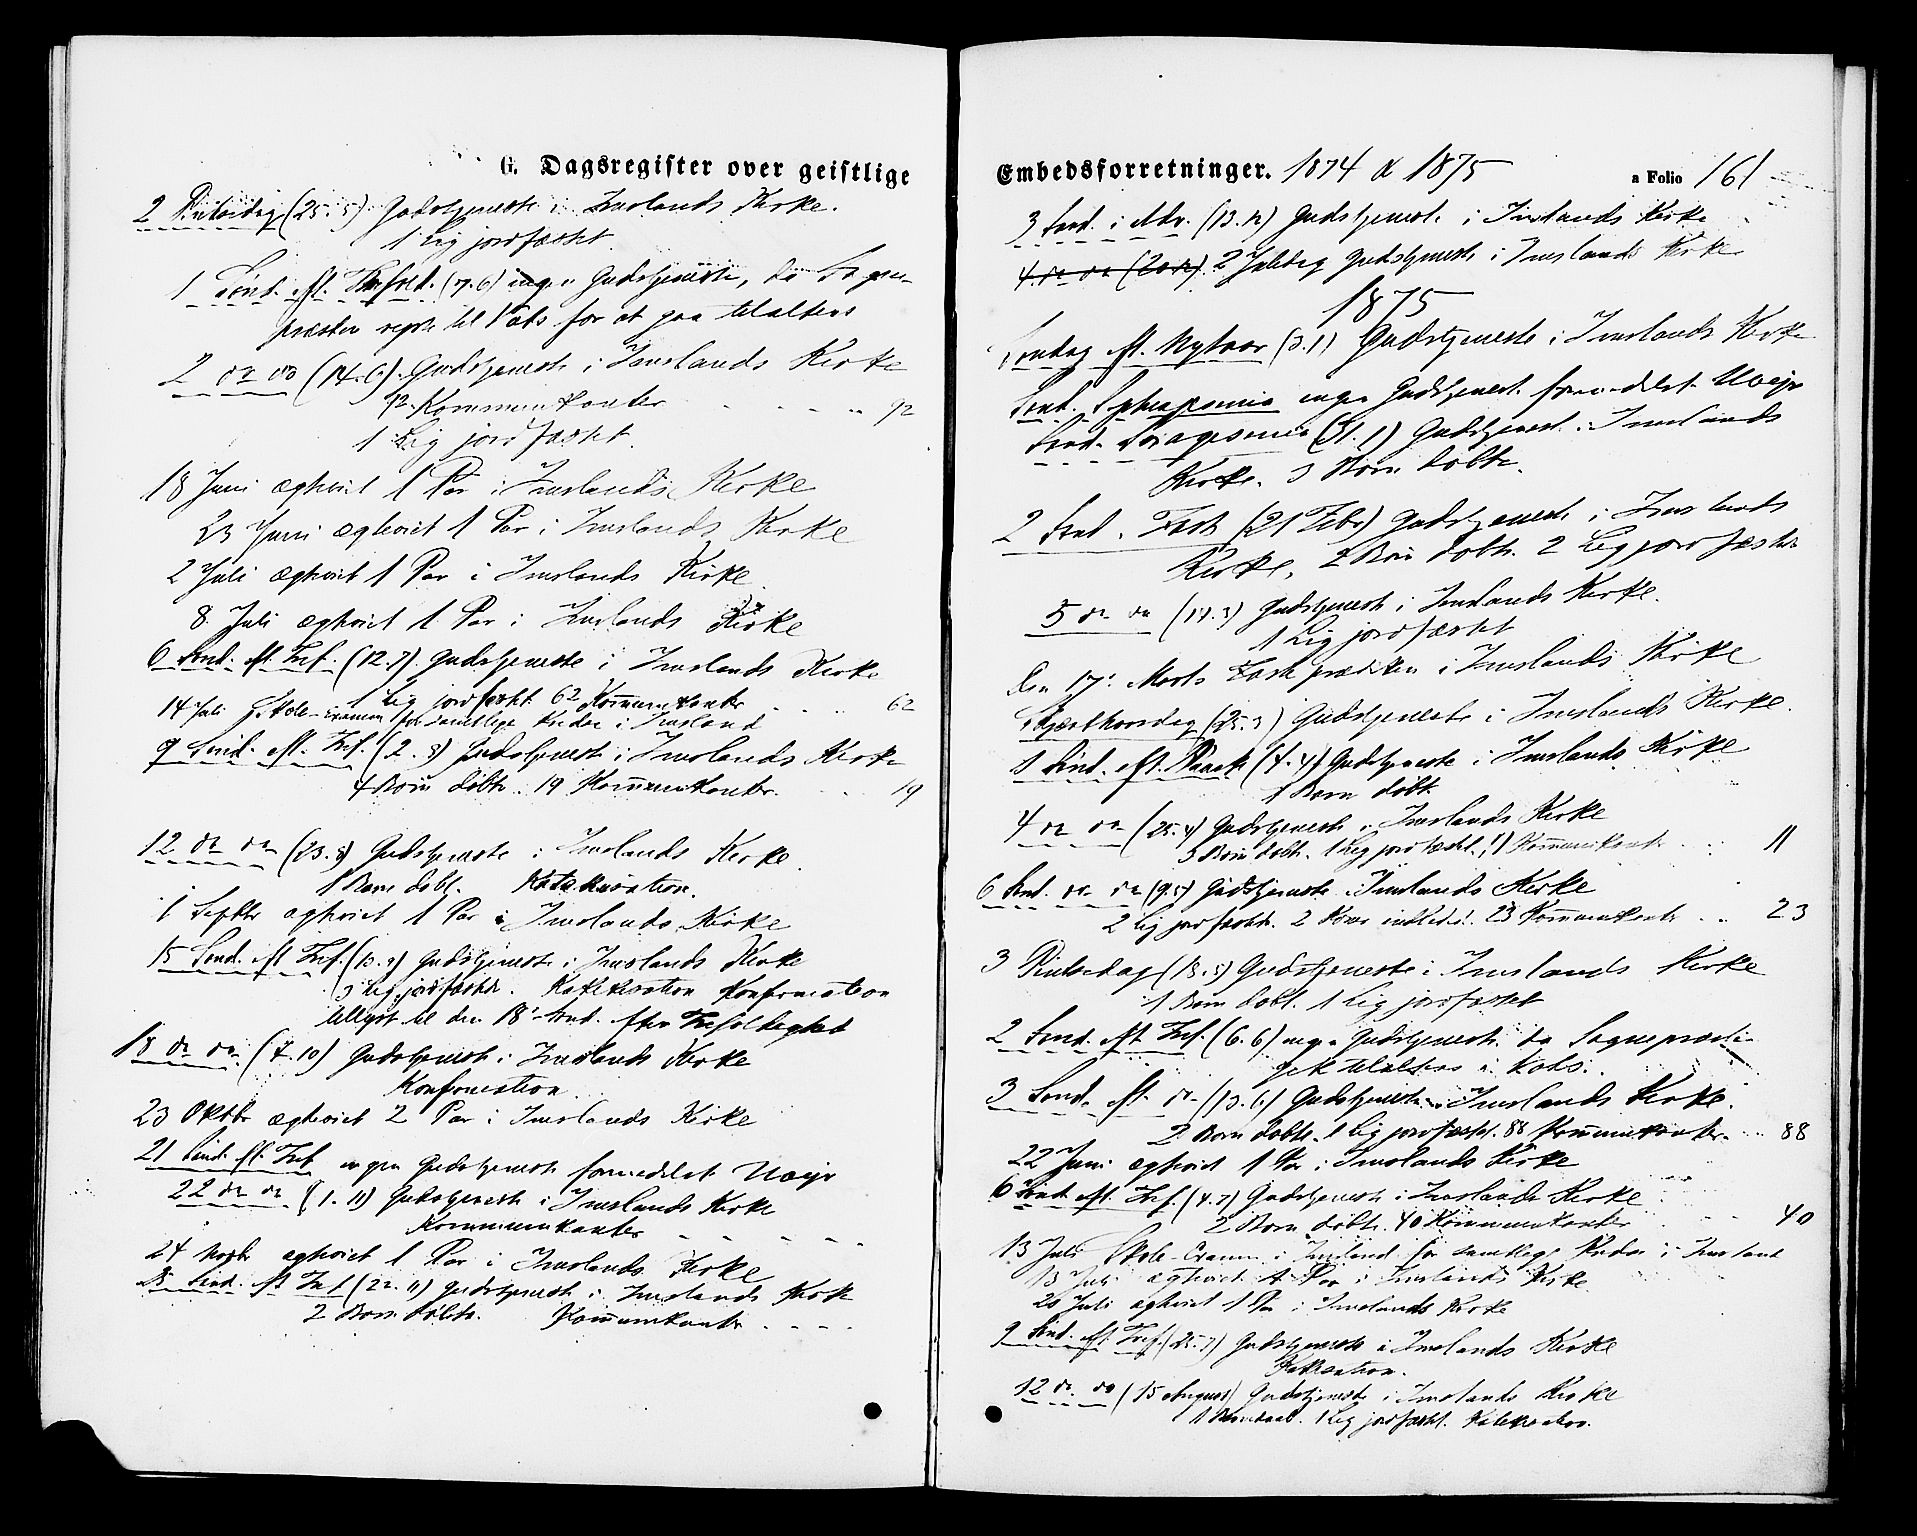 G. Dagsregister over geistlige
2 Pintsedag (25.5) Gudstjeneste i Imslands Kirke.
1 Lig jordfæstet.
1 Sønd. eft. Trefold. (7.6) ingen Gudstjeneste, da Sogne-
præsten rejste til Vats for at paa
2 do do (14.6). Gudstjeneste i Imslands Kirke
92 Kommunikanter 92
1 Lig jordfæstet.
18 Juni ægteviet 1 Par i Imslands Kirke
23 Juni ægteviet 1 Par i Imslands Kirke
2 Juli ægteviet 1 Par i Imslands Kirke
8 Juli ægteviet 1 Par i Imslands Kirke
6 Sønd. eft. Tref. (12.7). Gudstjeneste i Imslands Kirke
1 Lig jordfæstet 62 Kommunikanter 62
14 Juli Skole-Examen for samtlige Kredse i Imsland
9 Sønd. eft. Tref. (2.8) Gudstjeneste i Imslands Kirke
4 Børn døbte. 19 Kommunikanter. 19
12 do do (23.8) Gudstjeneste i Imslands Kirke.
1 Barn døbt. Katekisation.
1 Septbr ægteviet 1 Par i Imslands Kirke
15 Sønd. eft Tref. (13.9) Gudstjeneste i Imslands Kirke
3 Lig jordfæstede. Katekisation Konfirmation
tillyst til den 18' Sønd. efter Trefoldighed
18 do do (4.10) Gudstjeneste i Imslands Kirke
Konfirmation
23 Oktbr ægteviet 2 Par i Imslands Kirke
21 Sønd. eft. Tref ingen Gudstjeneste formedelst Uvejr
22 do do (1.11) Gudstjeneste i Imslands Kirke
Kommunikanter
24 Novbr ægteviet 1 Par i Imslands Kirke
25 Sønd. eft Tref (22.11) Gudstjeneste i Imslands Kirke
2 Børn døbte. Kommunikanter
Embedsforretninger. 1874 & 1875 a Folio 161
3 Sønd. i Adv. (13.12) Gudstjeneste i Imslands Kirke
4 do do (20.12) 2 Juledag Gudstjeneste i Imslands Kirke
1875
Søndag eft. Nytaar (3.1) Gudstjeneste i Imslands Kirke
Sønd. Septuagesima ingen Gudstjeneste formedelst Uvejr
Sønd. Sexagesima (31.1) Gudstjeneste i Imslands
Kirke. 3 Børn døbte.
2 Sønd. i Faste (21 Febr) Gudstjeneste i Imslands
Kirke. 2 Børn døbte. 2 Lig jordfæstede
5 do do (14.3) Gudstjeneste i Imslands Kirke.
1 Lig jordfæstet
Den 17' Marts Fasteprædiken i Imslands Kirke
Skjærthorsdag (25.3) Gudstjeneste i Imslands Kirke.
1 Sønd. eft. Paaske (4.4) Gudstjeneste i Imslands Kirke
1 Barn døbt
4 do do (25.4) Gudstjeneste i Imslands Kirke
3 Børn døbte. 1 Lig jordfæstet. 11 Kommunikanter 11
6 Sønd. do do (9.5) Gudstjeneste i Imslands Kirke
2 Lig jordfæstede. 2 Koner indledede. 23 Kommunikanter 23
3 Pintsedag (18.5) Gudstjeneste i Imslands Kirke
1 Barn døbt. 1 Lig jordfæstet
2 Sønd. eft Tref. (6.6) ingen Gudstjeneste da Sognepræsten
gik tilalters i Vats.
3 Sønd. eft. do (13.6) Gudstjeneste i Imslands Kirke.
2 Børn døbte. 1 Lig jordfæstet. 88 Kommunikanter 88
22 Juni ægteviet 1 Par i Imslands Kirke
6 Sønd eft. Tref. (4.7) Gudstjeneste i Imslands Kirke
2 Børn døbte. 40 Kommunikanter 40
13 Juli Skole-Examen i Imsland for samtlige Kredse i Imsland
13 Juli ægteviet 1 Par i Imslands Kirke
20 Juli ægteviet 1 Par i Imslands Kirke
9 Sønd. eft. Tref. (25.7) Gudstjeneste i Imslands Kirke
Katekisation.
12 do do (15 August) Gudstjeneste i Imslands Kirke
1 Barnedaab. 1 Lig jordfæstet. Katekisation.